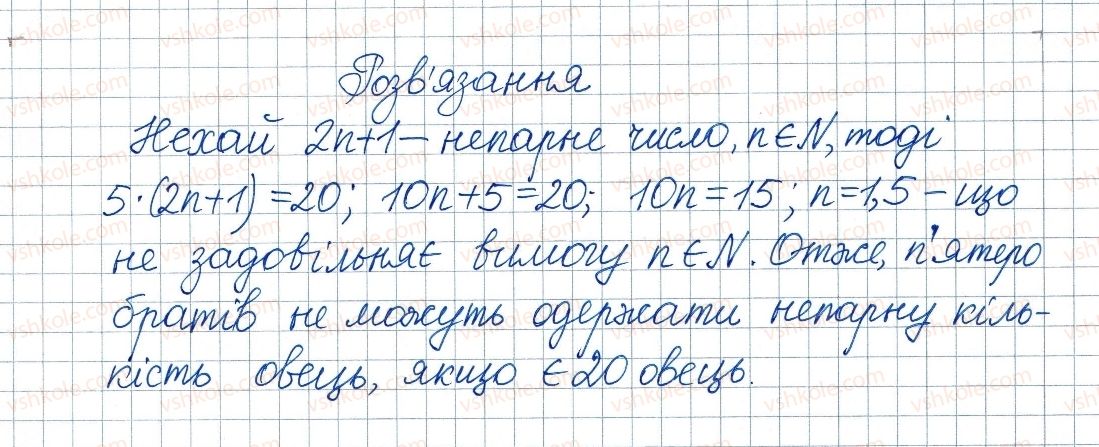 Розв'язання
Нехай 2n+1 – непарне число, n є N, тоді
5·(2n+1)=20; 10n+5=20; 10n=15; n=1,5 – що
не задовільняє вимогу n є N. Отже, п'ятеро
братів не можуть одержати непарну кіль-
кість овець, якщо є 20 овець.